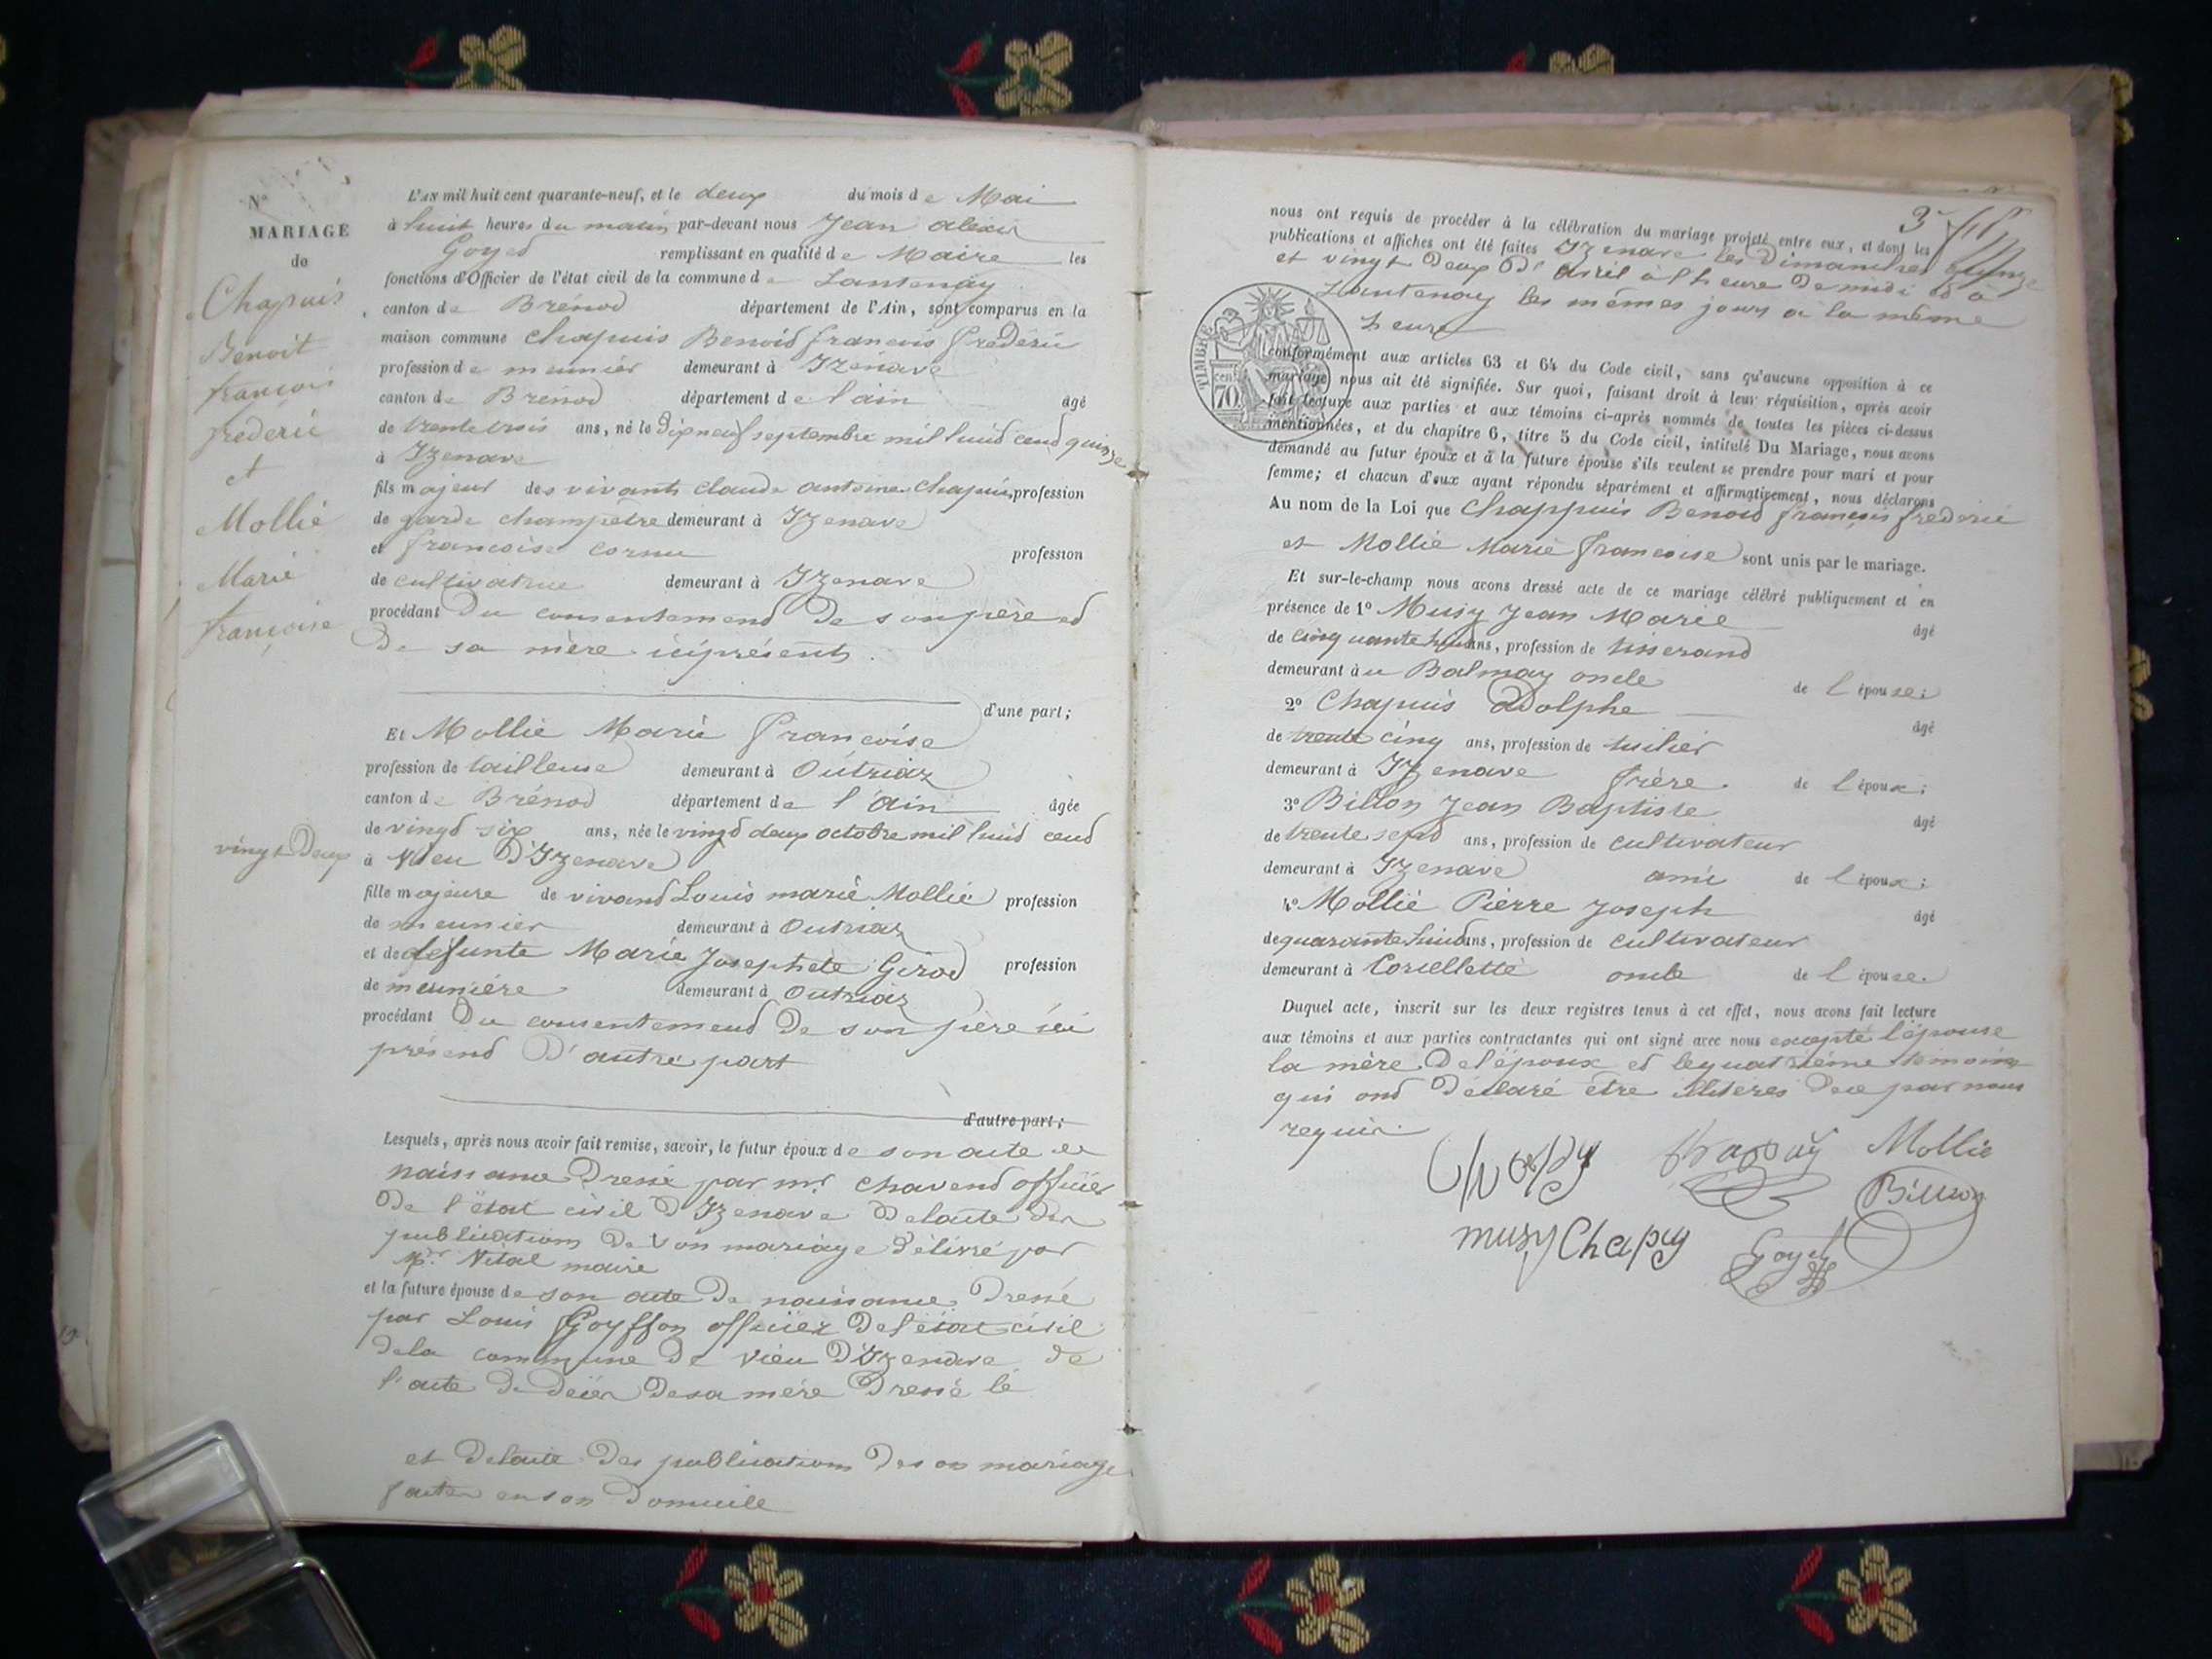 N°
MARIAGE
de
Chapuis
Benoit
françois
frederic
et
Mollie
Marie
françoise
L'AN mil huit cent quarante-neuf, et le deux du mois de Mai
à huit heures du matin par-devant nous Jean alexis
Goyet remplissant en qualité de Maire les
fonctions d'Officier de l'état civil de la commune de Lantenay
canton de Brénod département de l'Ain, sont comparus en la
maison commune Chapuis Benoid francois frederic
profession de meunier demeurant à Izenave
canton de Brénod département de l'ain âgé
de trente trois ans, né le Dixneuf septembre mil huid cend quinze
à Izenave
fils majeur des vivants claude antoine Chapuis profession
de garde champêtre demeurant à Izenave
et francoise cornu profession
de cultivatrice demeurant à Izenave
procédant Du consentemend De son père ed
De sa mère iciprésents.
d'une part;
Et Mollie Marie Françoise
profession de tailleuse demeurant à Outriaz
canton de Brénod département de l'Ain âgée
de vingd six ans, née le vingd deux octobre mil huid cend
vingt Deux
à Vieu D'Izenave
fille majeure de vivand Louis marie Mollie profession
de meunier demeurant à Outriaz
et de defunte Marie Josephete Girod profession
de meunière demeurant à Outriaz
procédant Du consentemend De son père ici
présend D'autre part
d'autre part;
Lesquels, après nous avoir fait remise, savoir, le futur époux de son acte de
naissance Dressé par mr chavend officier
De l'état civil D'Izenave Delacte des
publications De son mariage Délivré par
Mr. Vital maire
et la future épouse de son acte De naissance Dressé
par Louis Goyffon officier De l'état civil
dela commune De vieu D'Izenave de
l'acte De décés Desa mère Dressé le
et Delacte Des publications De son mariage
faites en son Domicile
3
nous ont requis de procéder à la célébration du mariage projeté entre eux, et dont les
publications et affiches ont été faites Izenave les Dimanches quinze
et vingt Deux D' avril à l'heure De midi ed à
Lantenay les mêmes jours à la même
heure
TIMBRE
70 cent
conformément aux articles 63 et 64 du Code civil, sans qu'aucune opposition à ce
mariage nous ait été signifiée. Sur quoi, faisant droit à leur réquisition, après avoir
fait lecture aux parties et aux témoins ci-après nommés de toutes les pièces ci-dessus
mentionnées, et du chapitre 6, titre 5 du Code civil, intitulé Du Mariage, nous avons
demandé au futur époux et à la future épouse s'ils veulent se prendre pour mari et pour
femme; et chacun d'eux ayant répondu séparément et affirmativement, nous déclarons
Au nom de la Loi que Chappuis Benoid françois frederic
et Mollie Marie francoise sont unis par le mariage.
Et sur-le-champ nous avons dressé acte de ce mariage célébré publiquement et en
présence de 1° Musy Jean Marie âgé
de cinquante huid ans, profession de tisserand
demeurant à u Balmay oncle de l'épouse;
2° Chapuis adolphe âgé
de trente cinq ans, profession de tuilier
demeurant à Izenave frère de l'époux;
3° Billon Jean Baptiste âgé
de trente sepd ans, profession de cultivateur
demeurant à Izenave ami de l'époux;
4° Mollie Pierre Joseph âgé
de quarante huid ans, profession de cultivateur
demeurant à Corcellette oncle de l'épouse.
Duquel acte, inscrit sur les deux registres tenus à cet effet, nous avons fait lecture
aux témoins et aux parties contractantes qui ont signé avec nous excepté l'épouse
la mère De l'époux et lequatrième témoins
qui ond Déclaré être illiterés Dece par nous
requis.
Mollie
Billion
musy Chapuy
Goyet